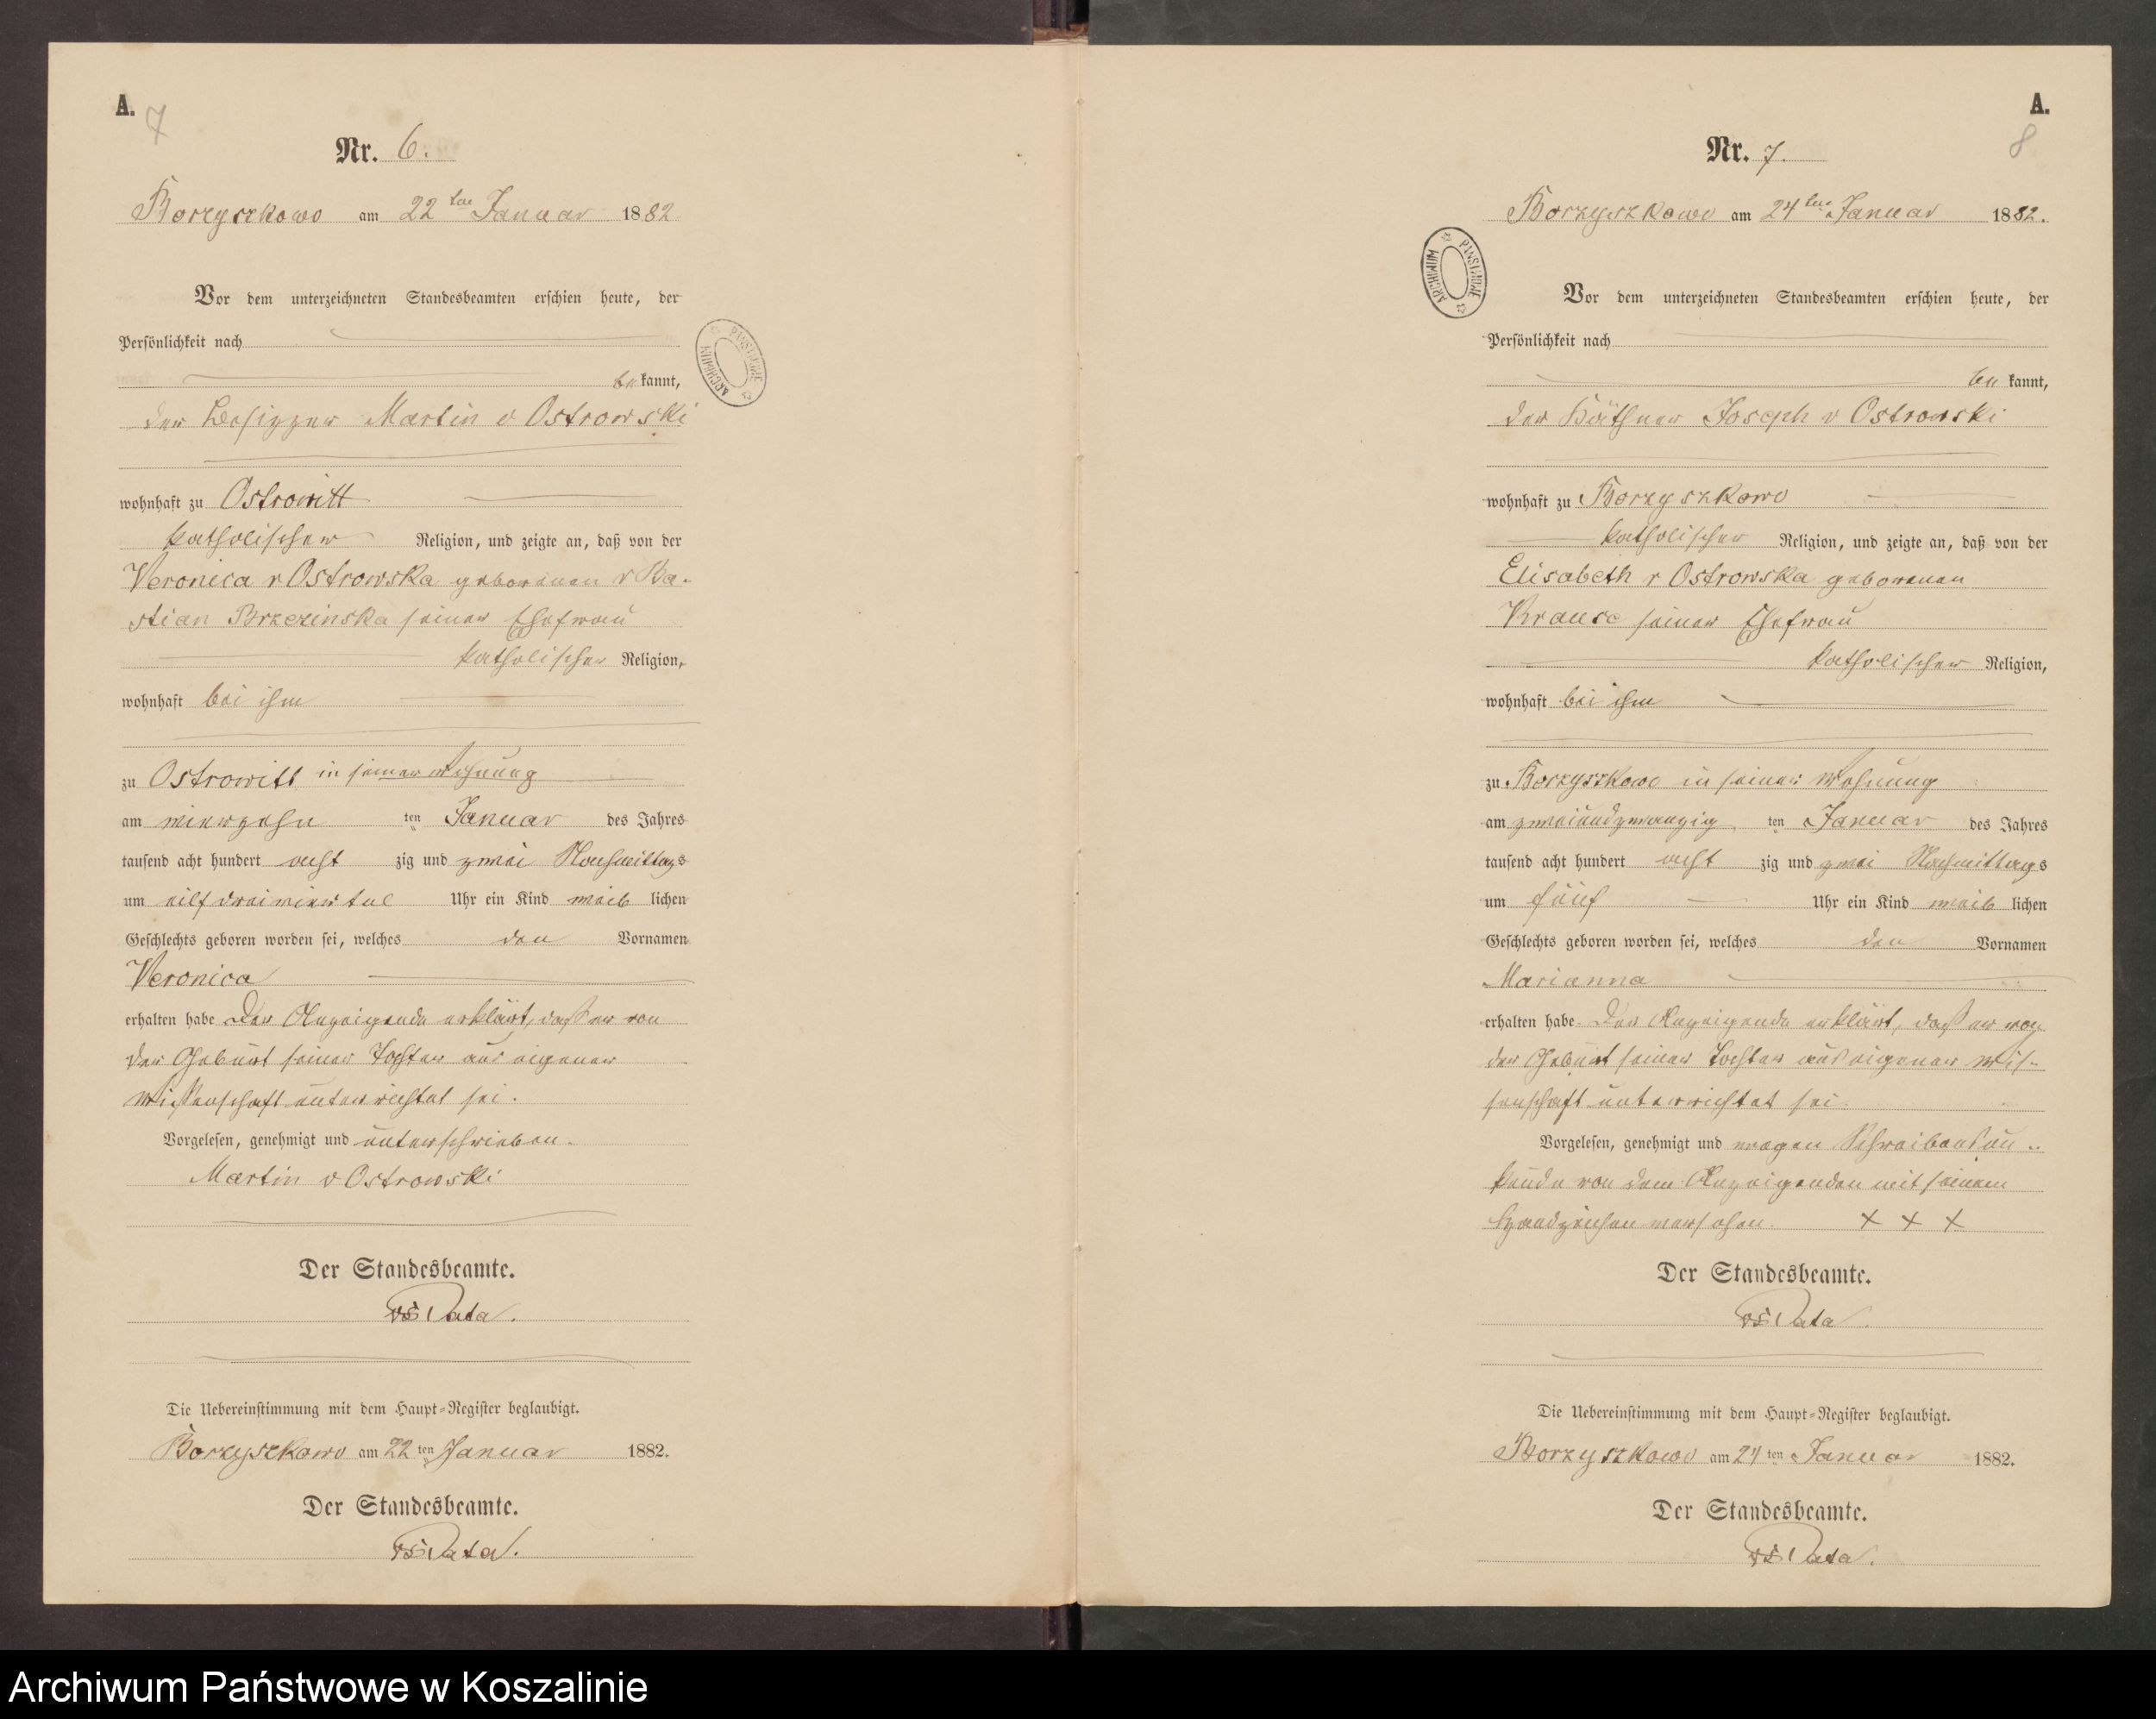 A.
7
Nr. 6.
Borzyszkowo am 22ten Januar 1882
Vor dem unterzeichneten Standesbeamten erschien heute, der
Persönlichkeit nach
be kannt,
der Besitzer Martin v Ostrowski
wohnhaft zu Ostrowitt
katholischer Religion, und zeigte an, daß von der
Veronica v Ostrowska geborenen v Ba-
stian Brzezinska seiner Ehefrau
katholischer Religion,
wohnhaft bei ihm
zu Ostrowitt in seiner Wohnung
am vierzehn ten Januar des Jahres
tausend acht hundert acht zig und zwei Nachmittags
um eilf dreiviertel Uhr ein Kind weib lichen
Geschlechts geboren worden sei, welches den Vornamen
Veronica
erhalten habe Der Anzeigende erklärt, daß er von
der Geburt seiner Tochter aus eigener
Wissenschaft unterrichtet sei.
Vorgelesen, genehmigt und unterschrieben.
Martin v Ostrowski
Der Standesbeamte.
Pata.
Die Uebereinstimmung mit dem Haupt-Register beglaubigt.
Borzyszkowo am 22 ten Januar 1882.
Der Standesbeamte.
Pata.
ARCHIWUM PAŃSTWOWE
A.
8
Nr. 7.
Borzyszkowo am 24ten Januar 1882.
ARCHIWUM PAŃSTWOWE
Vor dem unterzeichneten Standesbeamten erschien heute, der
Persönlichkeit nach
be kannt,
der Käthner Joseph v Ostrowski
wohnhaft zu Borzyszkowo
katholischer Religion, und zeigte an, daß von der
Elisabeth v Ostrowska geborenen
Krause seiner Ehefrau
katholischer Religion,
wohnhaft bei ihm
zu Borzyszkowo in seiner Wohnung
am zweiundzwanzig ten Januar des Jahres
tausend acht hundert acht zig und zwei Nachmittags
um fünf Uhr ein Kind weib lichen
Geschlechts geboren worden sei, welches den Vornamen
Marianna
erhalten habe. Der Anzeigende erklärt, daß er von
der Geburt seiner Tochter aus eigener Wis-
senschaft unterrichtet sei.
Vorgelesen, genehmigt und wegen Schreibensun-
kunde von dem Anzeigenden mit seinem
Handzeichen versehen. X X X
Der Standesbeamte.
Pata.
Die Uebereinstimmung mit dem Haupt-Register beglaubigt.
Borzyszkowo am 24 ten Januar 1882.
Der Standesbeamte.
Pata.
Archiwum Państwowe w Koszalinie